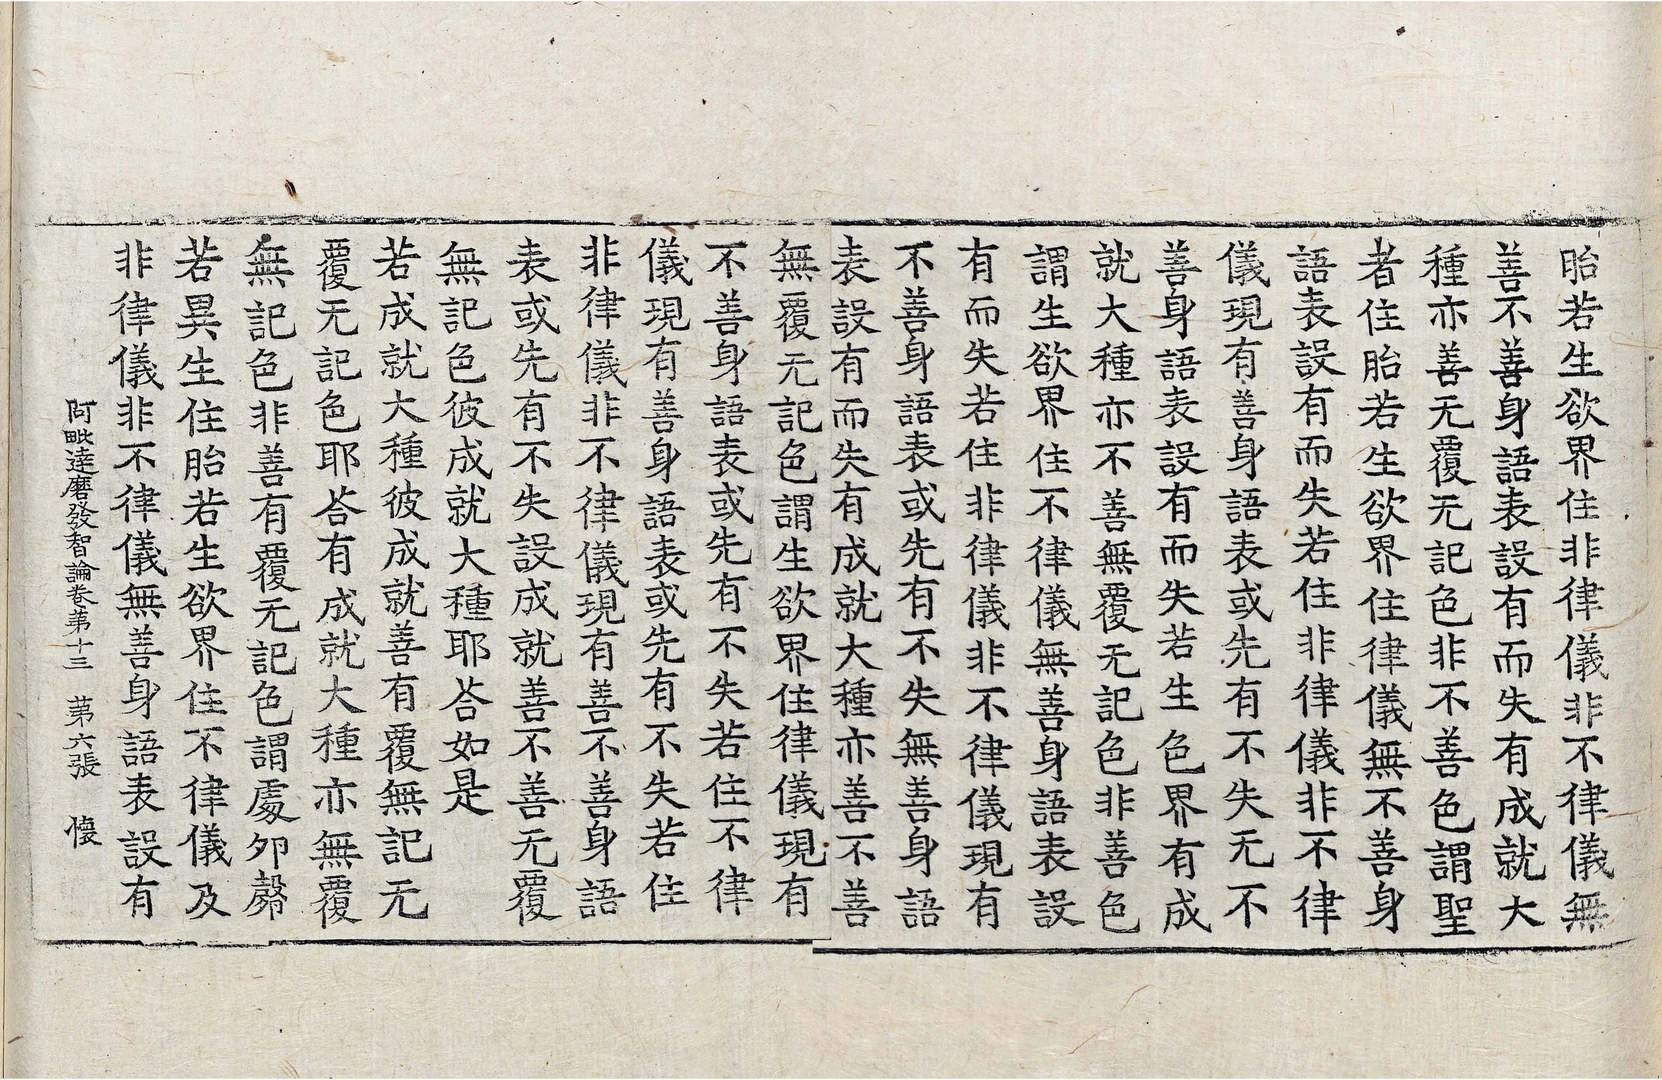 胎若生欲界住非律儀非不律儀無
善不善身語表設有而失有成就大
種亦善无覆无記色非不善色謂聖
者住胎若生欲界住律儀無不善身
語表設有而失若住非律儀非不律
儀現有善身語表或先有不失无不
善身語表設有而失若生色界有成
就大種亦不善無覆无記色非善色
謂生欲界住不律儀無善身語表設
有而失若住非律儀非不律儀現有
不善身語表或先有不失無善身語
表設有而失有成就大種亦善不善
無覆无記色謂生欲界住律儀現有
不善身語表或先有不失若住不律
儀現有善身語表或先有不失若住
非律儀非不律儀現有善不善身語
表或先有不失設成就善不善无覆
無記色彼成就大種耶荅如是
若成就大種彼成就善有覆無記无
覆无記色耶荅有成就大種亦無覆
無記色非善有覆无記色謂處夘㲉
若異生住胎若生欲界住不律儀及
非律儀非不律儀無善身語表設有
阿毗達磨發智論卷苐十三　苐六張　懐